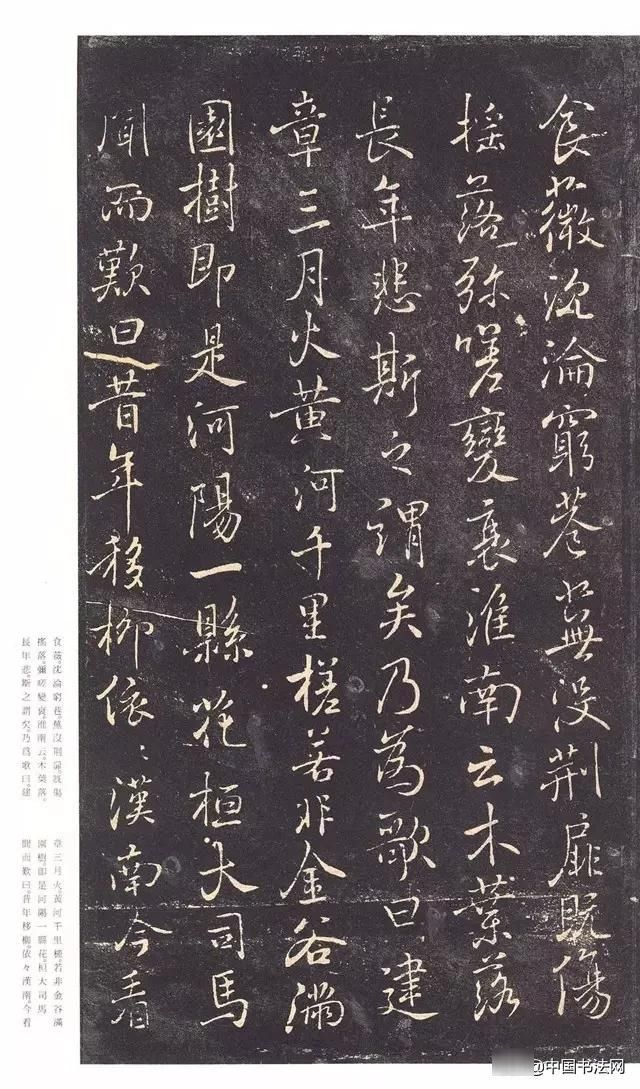 食薇沈淪窮巷蕪没荆扉既傷
摇落弥嗟變衰淮南云木葉落
長年悲斯之謂矣乃為歌曰建
章三月火黄河千里槎若非金谷滿
園樹即是河陽一縣花桓大司馬
聞而歎曰昔年移柳依〻漢南今看
食薇。沈淪窮巷。蕪沒荆扉。既傷
搖落。彌嗟變衰。淮南云。木葉落。
長年悲。斯之謂矣。乃爲歌曰。建
章三月火。黃河千里槎。若非金谷滿
園樹。即是河陽一縣花。桓大司馬
聞而歎曰。昔年移柳。依々漢南。今看
@中国书法网